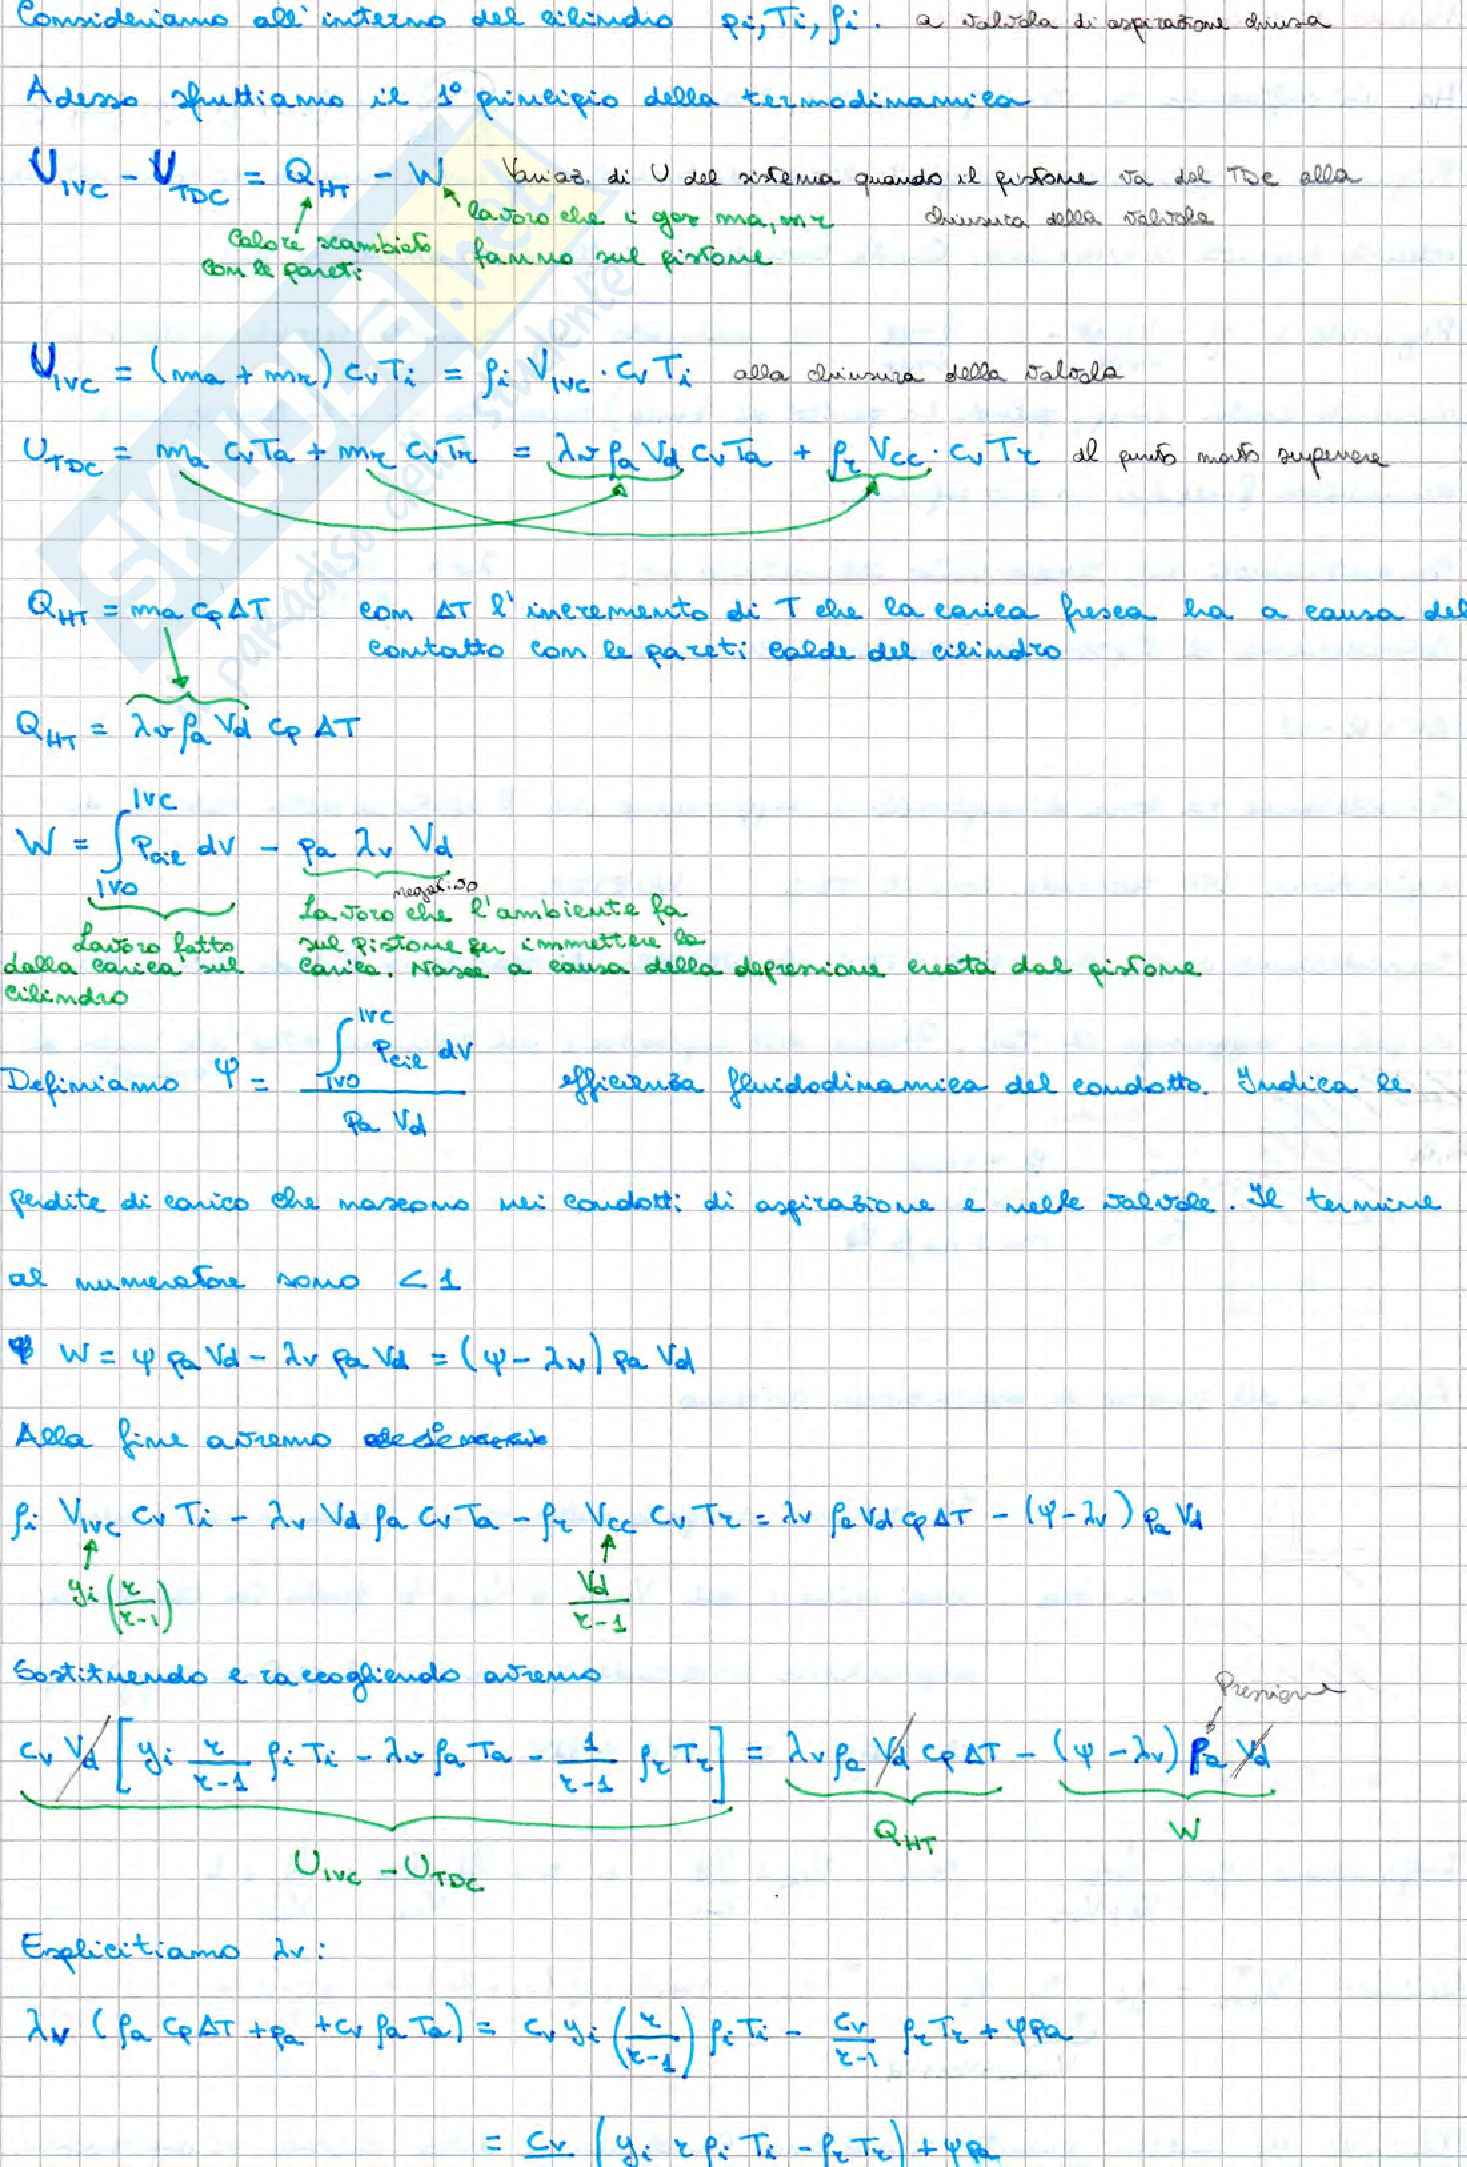 Consideriamo all'interno del cilindro pi, Ti, ρi. a valvola di aspirazione chiusa
Adesso sfruttiamo il 1° principio della termodinamica
U_IVC - U_TDC = Q_HT - W Variaz. di U del sistema quando il pistone va dal TDC alla
chiusura della valvola
lavoro che i gas ma, mr
fanno sul pistone
Calore scambiato
con le pareti
U_IVC = (ma + mr) cv Ti = ρi V_IVC · cv Ti alla chiusura della valvola
U_TDC = ma cv Ta + mr cv Tr = λv ρa Vd cv Ta + ρr Vcc · cv Tr al punto morto superiore
Q_HT = ma cp ΔT con ΔT l'incremento di T che la carica fresca ha a causa del
contatto con le pareti calde del cilindro
Q_HT = λv ρa Vd cp ΔT
W = ∫_IVO^IVC Pcil dV - pa λv Vd
Lavoro fatto
dalla carica sul
cilindro
negativo
Lavoro che l'ambiente fa
sul pistone per immettere la
carica. Nasce a causa della depressione creata dal pistone
Definiamo φ = ∫_IVO^IVC Pcil dV / Pa Vd efficienza fluidodinamica del condotto. Indica le
perdite di carico che nascono nei condotti di aspirazione e nelle valvole. Il termine
al numeratore sono < 1
W = φ pa Vd - λv pa Vd = (φ - λv) pa Vd
Alla fine avremo
ρi V_IVC cv Ti - λv Vd ρa cv Ta - ρr Vcc cv Tr = λv ρa Vd cp ΔT - (φ - λv) pa Vd
yi (r/r-1)
Vd/r-1
Sostituendo e raccogliendo avremo
Pressione
cv Vd [yi r/r-1 ρi Ti - λv ρa Ta - 1/r-1 ρr Tr] = λv ρa Vd cp ΔT - (φ - λv) Pa Vd
U_IVC - U_TDC
Q_HT
W
Esplicitiamo λv:
λv (ρa cp ΔT + pa + cv ρa Ta) = cv yi (r/r-1) ρi Ti - cv/r-1 ρr Tr + φ pa
= cv (yi r ρi Ti - ρr Tr) + φ pa
SKUOLA.net
paradiso dello studente